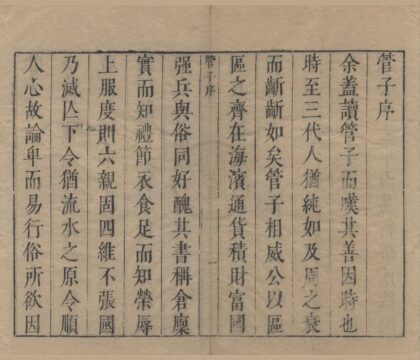 管子序
余蓋讀管子而嘆其善因時也
時至三代人猶純如及周之衰
而斷斷如矣管子相威公以區
區之齊在海濱通貨積財富國
管子序
一
强兵與俗同好醜其書稱倉廩
實而知禮節衣食足而知榮辱
上服度則六親固四維不張國
乃滅亾下令猶流水之原令順
人心故論卑而易行俗所欲因